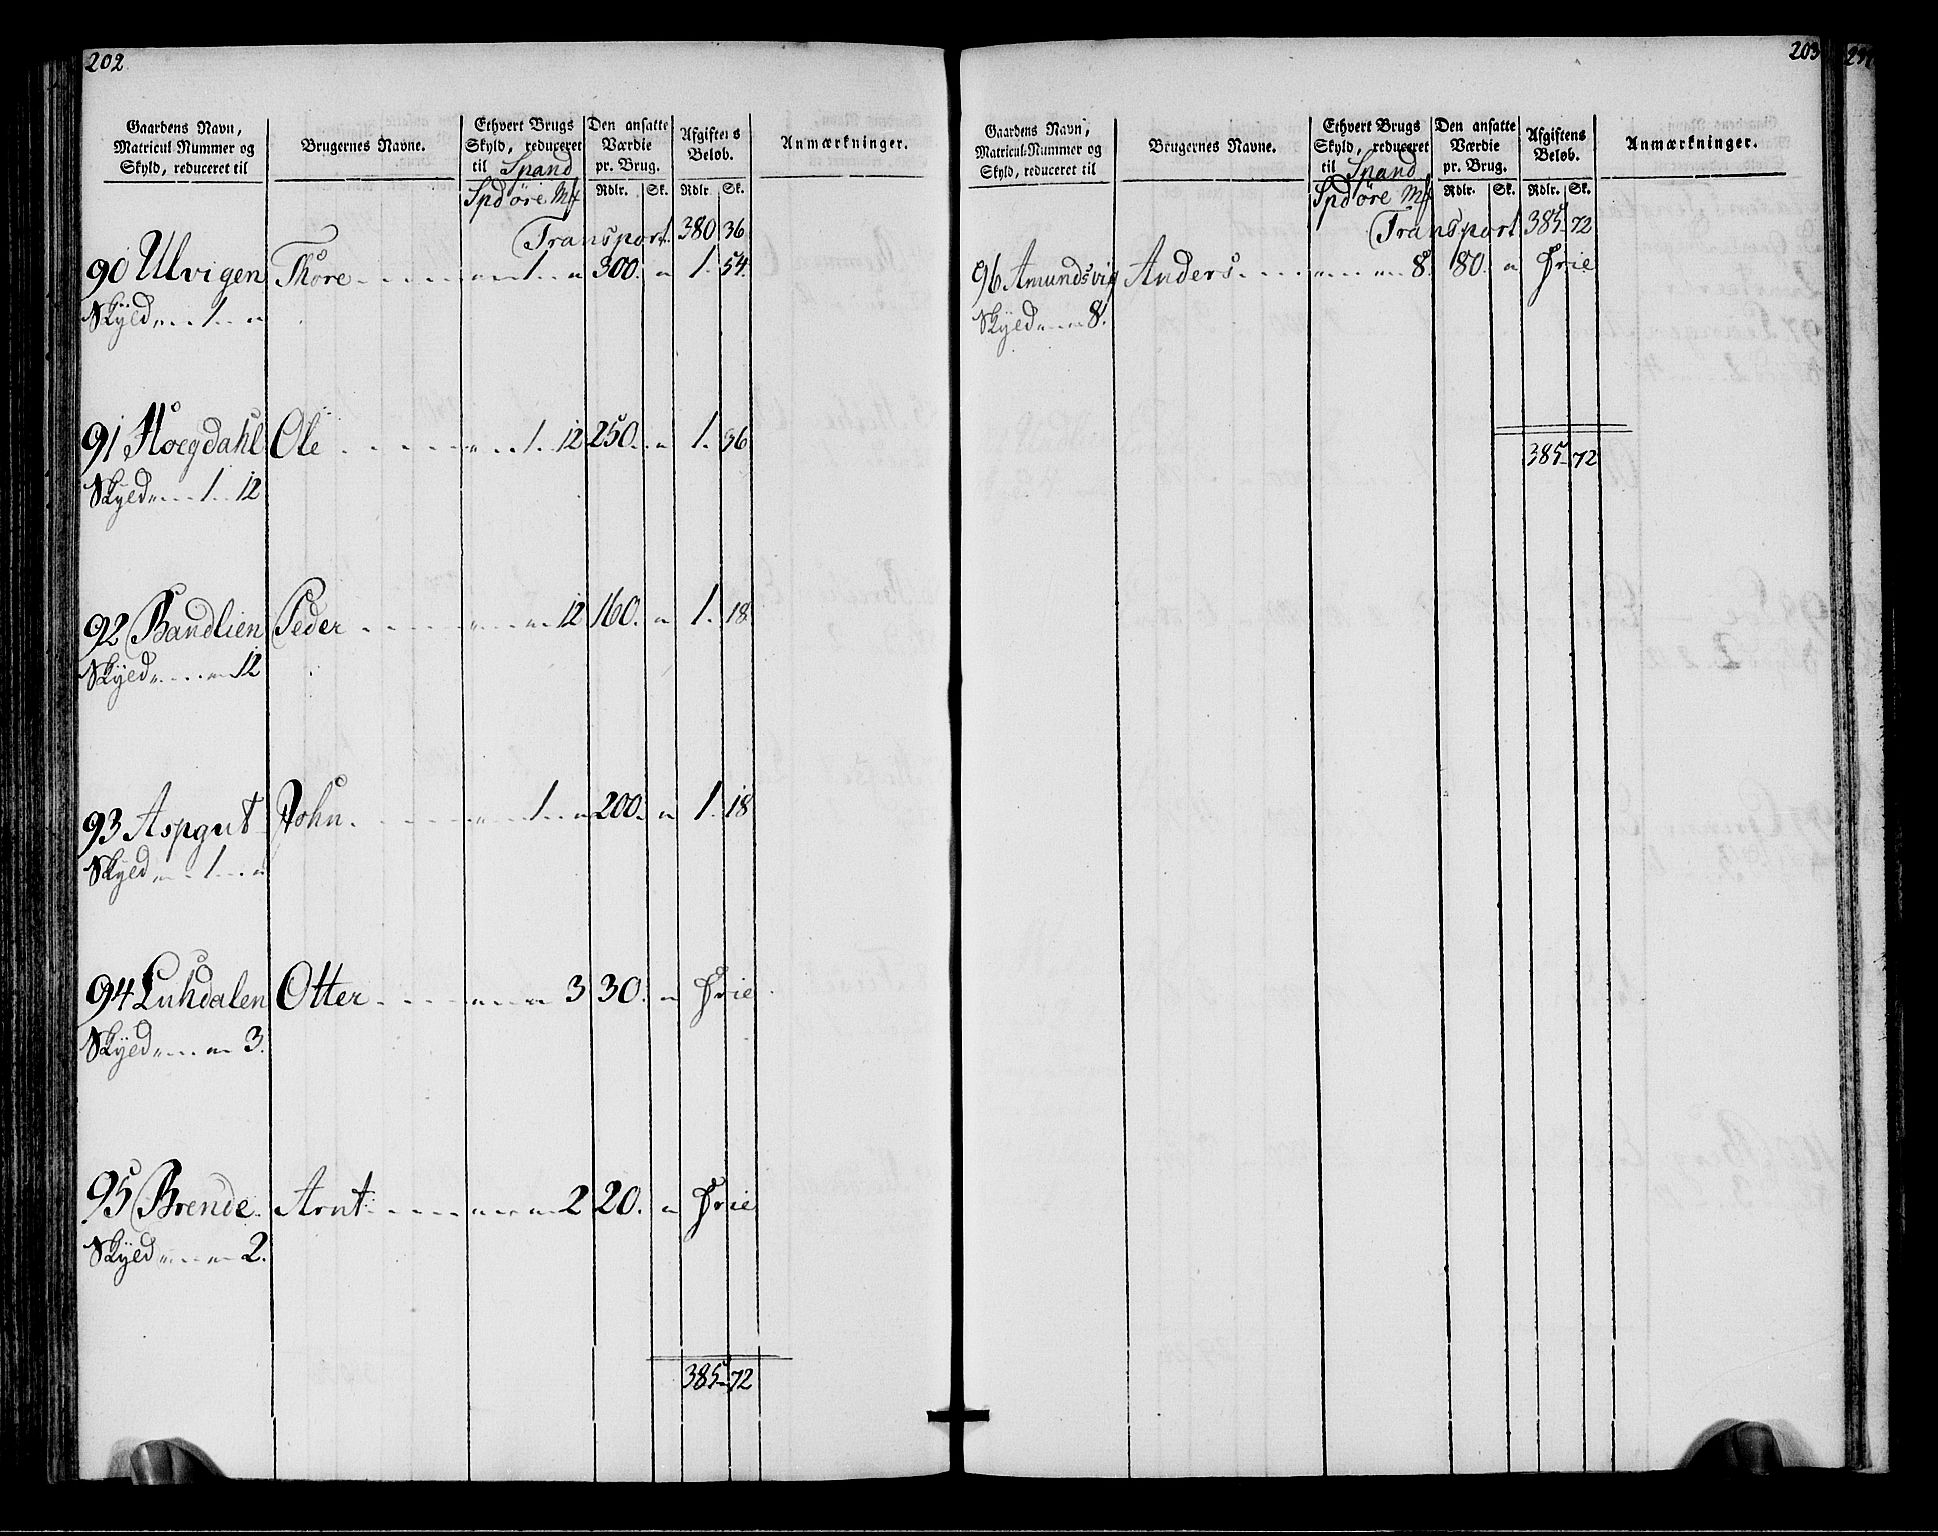 202
Gaardens Navn, Matricul Nummer og Skyld, reduceret til
Brugernes Navne.
Ethvert Brugs Skyld, reduceret til Spand
Den ansatte Værdie pr. Brug.
Afgiftens Beløb.
Anmærkninger.
Spd øre Mk Rdlr. Sk. Rdlr. Sk.
Transport 380 36
90 Ulvigen Thore 1 300. 1. 54.
Skyld 1
91 Hoegdahl Ole 1. 12 250. 1. 36
Skyld 1 12
92 Bandlien Peder 12 160. 1. 18
Skyld 12
93 Aspgut John 1 200. 1. 18
Skyld 1
94 Luhdalen Otter 3 30. frie
Skyld 3.
95 Brende Arnt 2 20. frie
Skyld 2.
385 72
203
Gaardens Navn, Matricul-Nummer og Skyld, reduceret til
Brugernes Navne.
Ethvert Brugs Skyld, reduceret til Spand
Den ansatte Værdie pr. Brug.
Afgiftens Beløb.
Anmærkninger.
Spd øre Mk Rdlr. Sk. Rdlr. Sk.
Transport 385 72
96 Amundsvig Anders 8. 80. frie
Skyld 8.
385 72